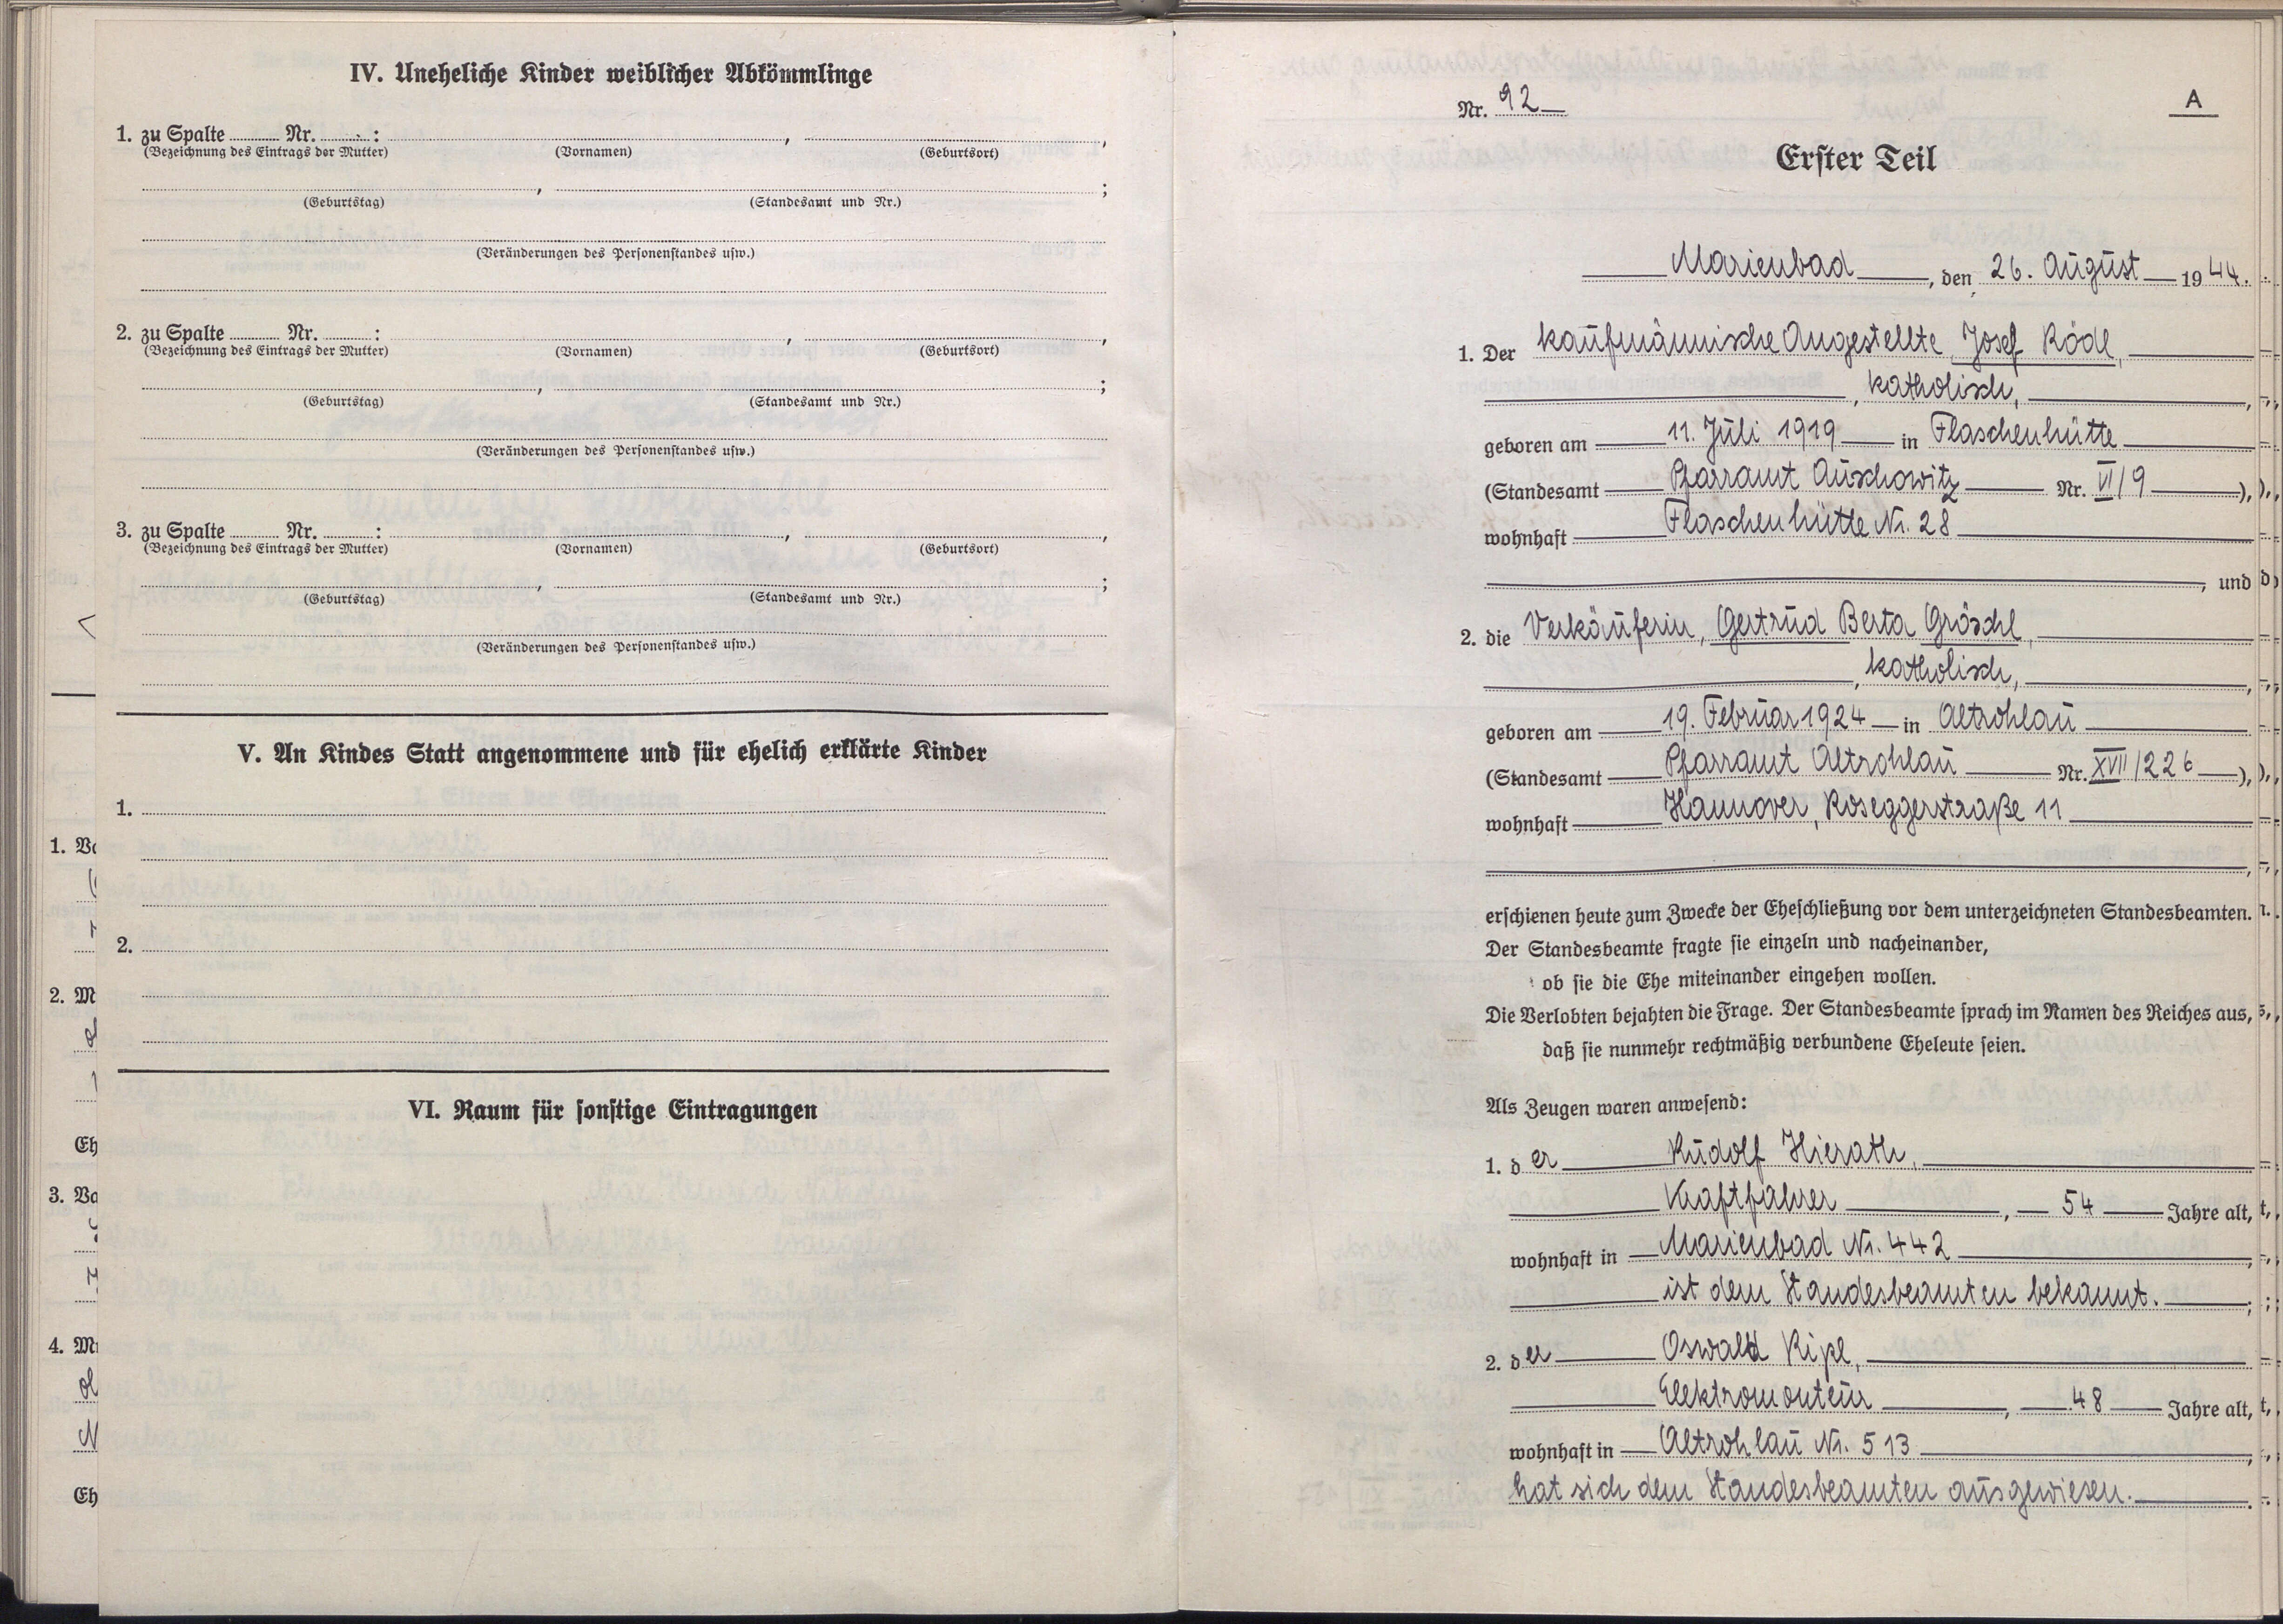 IV. Uneheliche Kinder weiblicher Abkömmlinge
1. zu Spalte ........ Nr. ........: , ,
(Bezeichnung des Eintrags der Mutter) (Vornamen) (Geburtsort)
, ;
(Geburtstag) (Standesamt und Nr.)
(Veränderungen des Personenstandes usw.)
2. zu Spalte ........ Nr. ........: , ,
(Bezeichnung des Eintrags der Mutter) (Vornamen) (Geburtsort)
, ;
(Geburtstag) (Standesamt und Nr.)
(Veränderungen des Personenstandes usw.)
3. zu Spalte ........ Nr. ........: , ,
(Bezeichnung des Eintrags der Mutter) (Vornamen) (Geburtsort)
, ;
(Geburtstag) (Standesamt und Nr.)
(Veränderungen des Personenstandes usw.)
V. An Kindes Statt angenommene und für ehelich erklärte Kinder
1.
2.
VI. Raum für sonstige Eintragungen
Nr. 92
A
Erster Teil
Marienbad, den 26. August 1944.
1. Der kaufmännische Angestellte Josef Rödl,
, katholisch,
geboren am 11. Juli 1919 in Flaschenhütte
(Standesamt Pfarramt Auschowitz Nr. VI/9),
wohnhaft Flaschenhütte Nr. 28
, und
2. die Verkäuferin, Gertrud Berta Gröschl,
, katholisch,
geboren am 19. Februar 1924 in Altrohlau
(Standesamt Pfarramt Altrohlau Nr. XVII/226),
wohnhaft Hannover, Roseggerstraße 11
,
erschienen heute zum Zwecke der Eheschließung vor dem unterzeichneten Standesbeamten.
Der Standesbeamte fragte sie einzeln und nacheinander,
ob sie die Ehe miteinander eingehen wollen.
Die Verlobten bejahten die Frage. Der Standesbeamte sprach im Namen des Reiches aus,
daß sie nunmehr rechtmäßig verbundene Eheleute seien.
Als Zeugen waren anwesend:
1. der Rudolf Hierath,
Kraftfahrer, 54 Jahre alt,
wohnhaft in Marienbad Nr. 442
ist dem Standesbeamten bekannt.
2. der Oswald Ripl,
Elektromonteur, 48 Jahre alt,
wohnhaft in Altrohlau Nr. 513
hat sich dem Standesbeamten ausgewiesen.